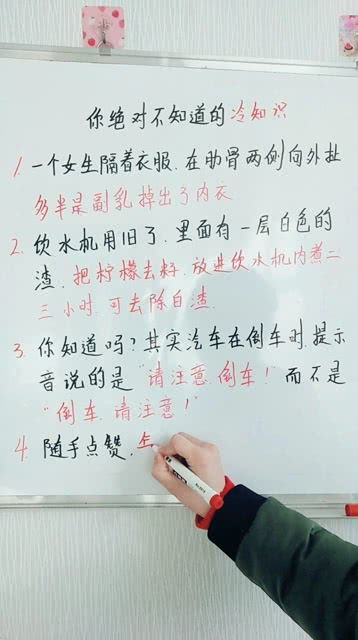 你绝对不知道的冷知识
1. 一个女生隔着衣服.在肋骨两侧向外扯
多半是副乳掉出了内衣
2. 饮水机用旧了.里面有一层白色的
渣.把柠檬去籽.放进饮水机内煮二
三小时.可去除白渣.
3. 你知道吗?其实汽车在倒车时.提示
音说的是"请注意.倒车!"而不是
"倒车.请注意!"
4. 随手点赞.